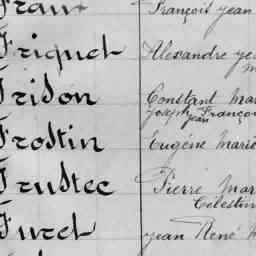 François Jean
Friquet Alexandre
Fridon Constant
Joseph François
Jean
Frostin Eugène Marie
Frustec Pierre Mar
Célestin
Furet Jean René